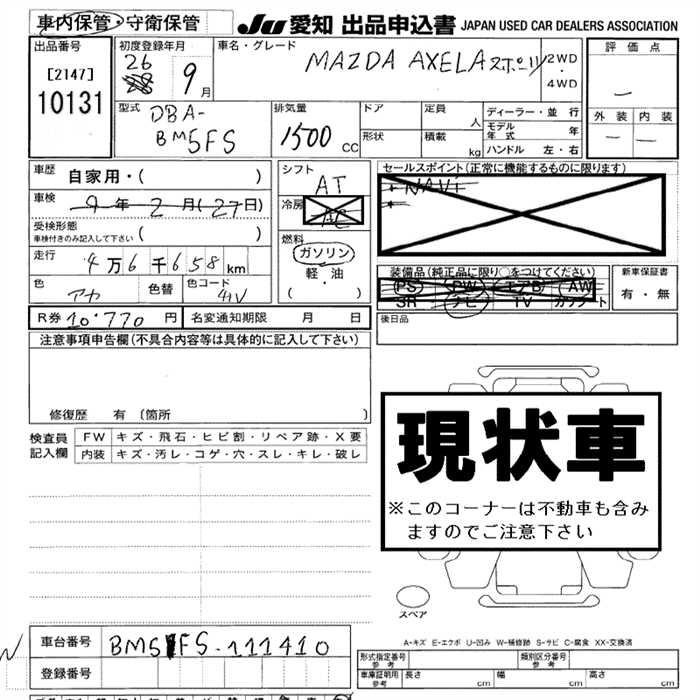 車内保管・守衛保管
JU 愛知 出品申込書 JAPAN USED CAR DEALERS ASSOCIATION
出品番号
[2147]
10131
初度登録年月
26
9月
車名・グレード
MAZDA AXELA スポーツ
2WD
・
4WD
評価点
―
外装 内装
― ―
型式
DBA-
BM5FS
排気量
1500 CC
ドア
形状
定員 人
積載 kg
ディーラー・並行
モデル年式 年
ハンドル 左・右
車歴 自家用・( )
車検 9年2月(27日)
受検形態
車検付きのみ記入して下さい ( )
走行 4万6千658km
色 アカ 色替 色コード 41V
シフト
AT
冷房
AC
燃料
ガソリン
軽・油
( ・ )
セールスポイント(正常に機能するものに限ります)
+ NAVI
+
装備品(純正品に限り○をつけてください)
PS PW エアB AW
SR ナビ TV カワシート
新車保証書
有・無
後日品
R券 10,770 円 名変通知期限 月 日
注意事項申告欄(不具合内容等は具体的に記入して下さい)
修復歴 有 [箇所 ]
検査員記入欄
FW キズ・飛石・ヒビ割・リペア跡・X要
内装 キズ・汚レ・コゲ・穴・スレ・キレ・破レ
現状車
※このコーナーは不動車も含みますのでご注意下さい
スペア
A-キズ E-エクボ U-凹み W-補修跡 S-サビ C-腐食 XX-交換済
車台番号 BM5FS-111410
登録番号
形式指定番号 参考
類別区分番号 参考
車庫証明用 参考 長さ cm 幅 cm 高さ cm